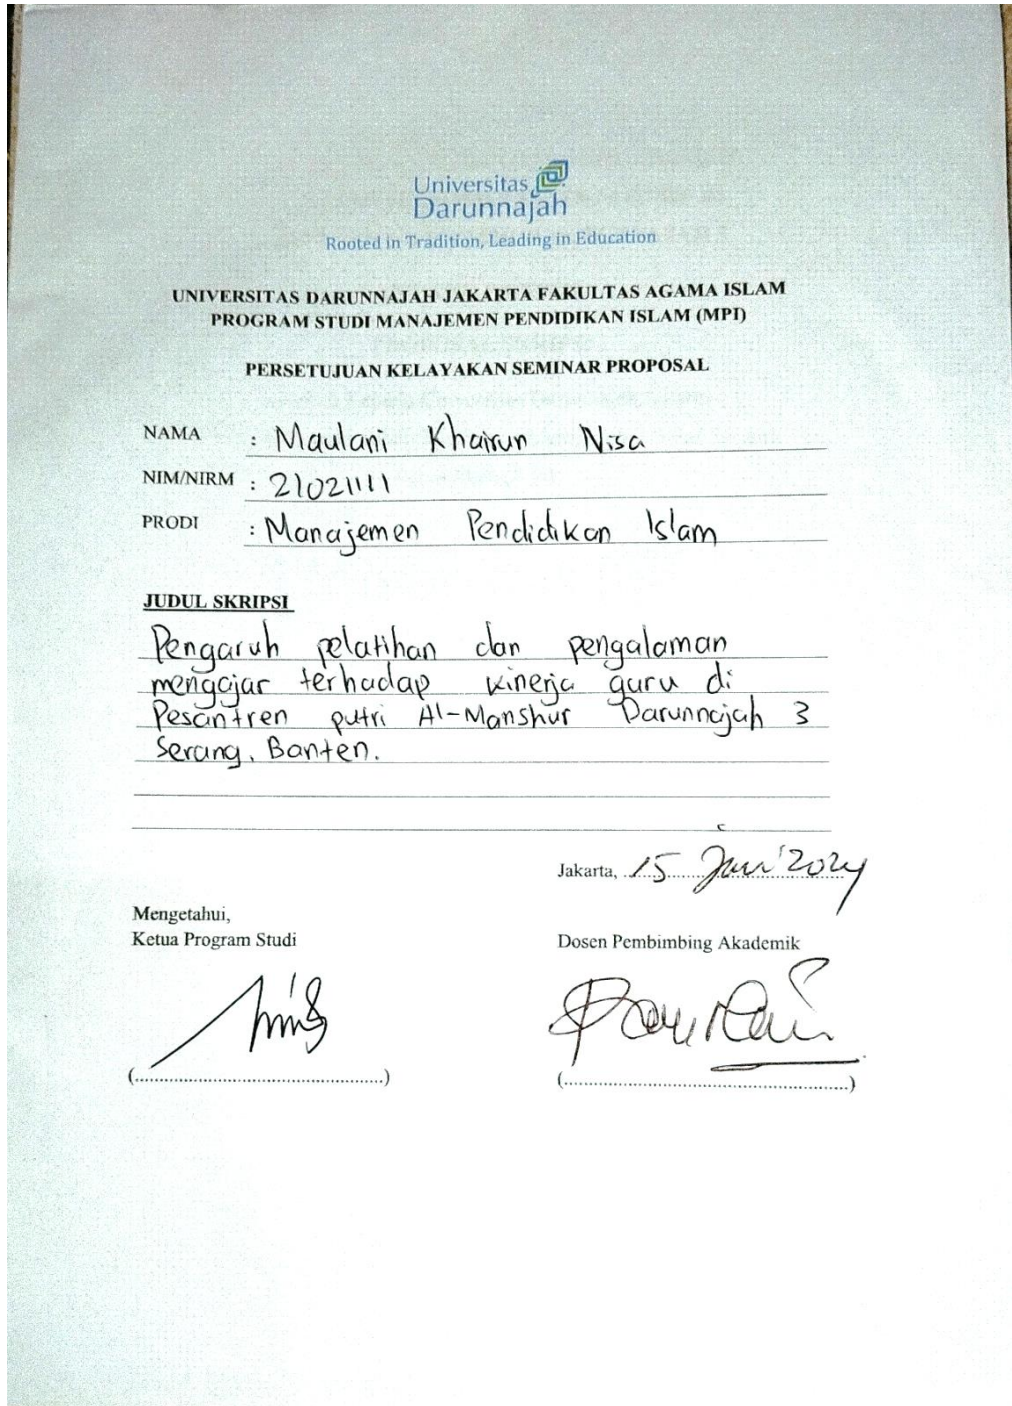 Universitas
Darunnajah
Rooted in Tradition, Leading in Education
UNIVERSITAS DARUNNAJAH JAKARTA FAKULTAS AGAMA ISLAM
PROGRAM STUDI MANAJEMEN PENDIDIKAN ISLAM (MPI)
PERSETUJUAN KELAYAKAN SEMINAR PROPOSAL
NAMA : Maulani Khairun Nisa
NIM/NIRM : 21021111
PRODI : Manajemen Pendidikan Islam
JUDUL SKRIPSI
Pengaruh pelatihan dan pengalaman
mengajar terhadap kinerja guru di
Pesantren putri Al-Manshur Darunnajah 3
Serang, Banten.
Jakarta, 15 Juni 2024
Mengetahui,
Ketua Program Studi
Dosen Pembimbing Akademik
(..................................................)
(..................................................)